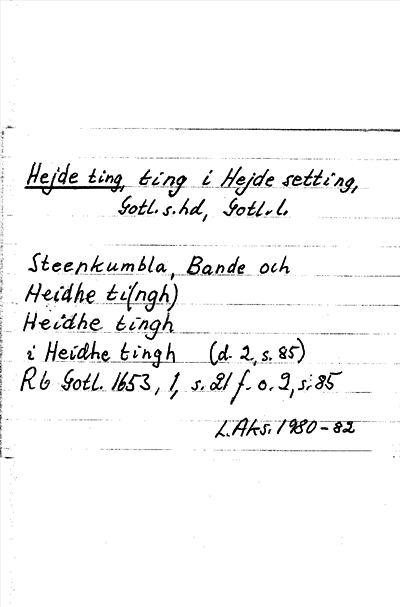 Hejde ting, ting i Hejde setting,
Gotl. s. hd, Gotl. l.
Steenkumbla, Bande och
Heidhe ti(ngh)
Heidhe tingh
i Heidhe tingh (d. 2, s. 85)
Rb Gotl. 1653, 1, s. 21 f. o. 2, s. 85
L. Aks. 1980-82